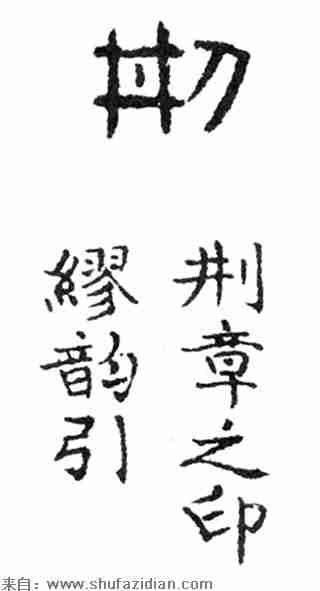 㓝
㓝章之印
繆韵引
来自：www.shufazidian.com